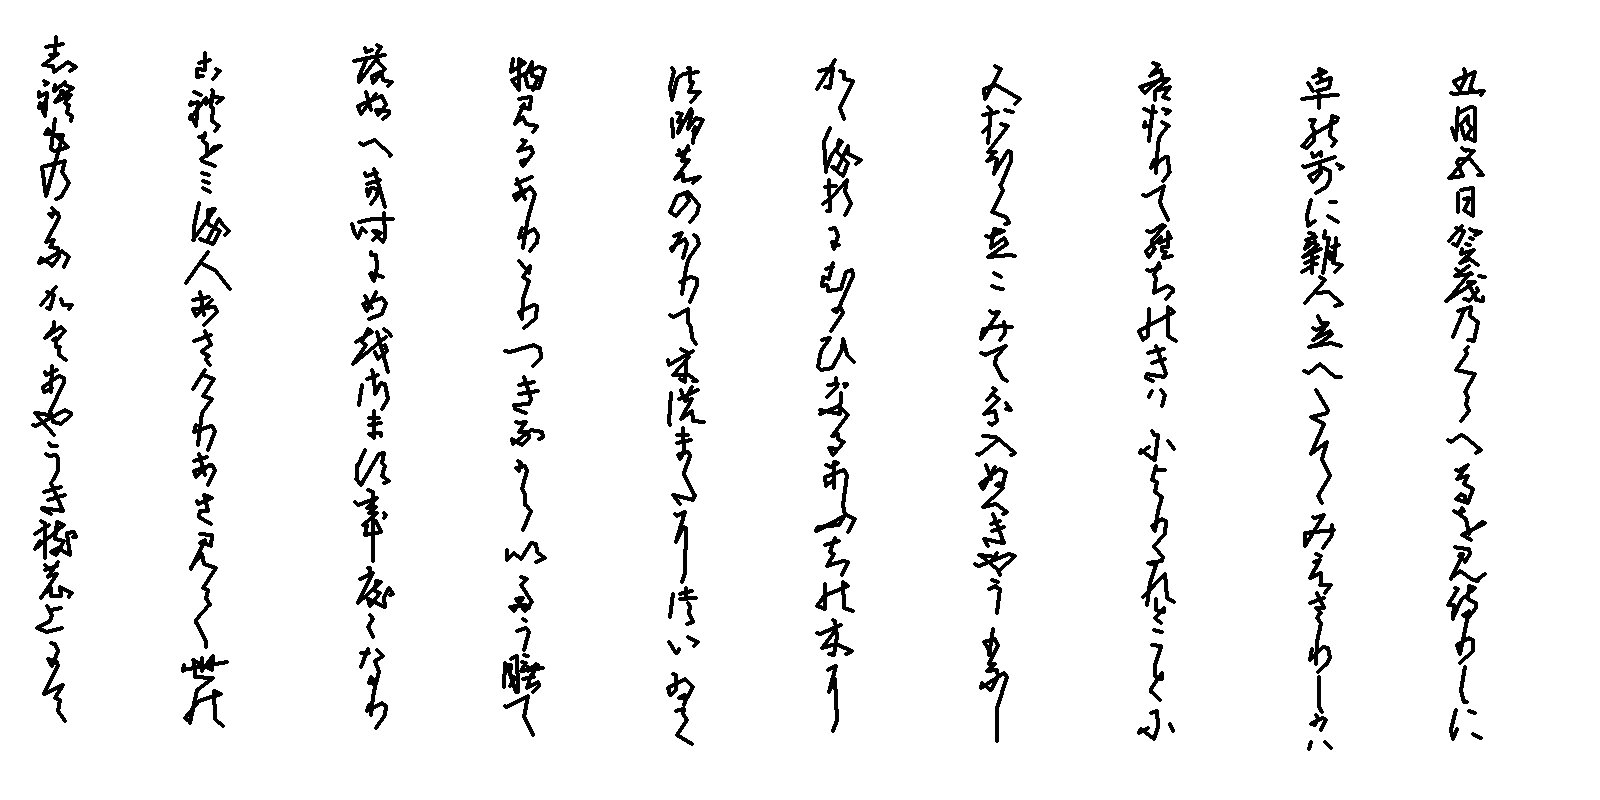 五月五日賀茂のくらへ馬を見侍りしに
車の前に雑人立へたてゝみえさりしかハ
各おりてらちのきハによりたれとことに
人おほく立こみて分入ぬへきやうもなし
かゝる折にむかひなるあふちの木に
法師ののほりて木のまたについゐて
物見るありとりつきなからいたう睡て
落ぬへき時にめをさます事度くなり
これをミる人あさけりあさ見て世の
しれものかなかくあやうき枝の上にて